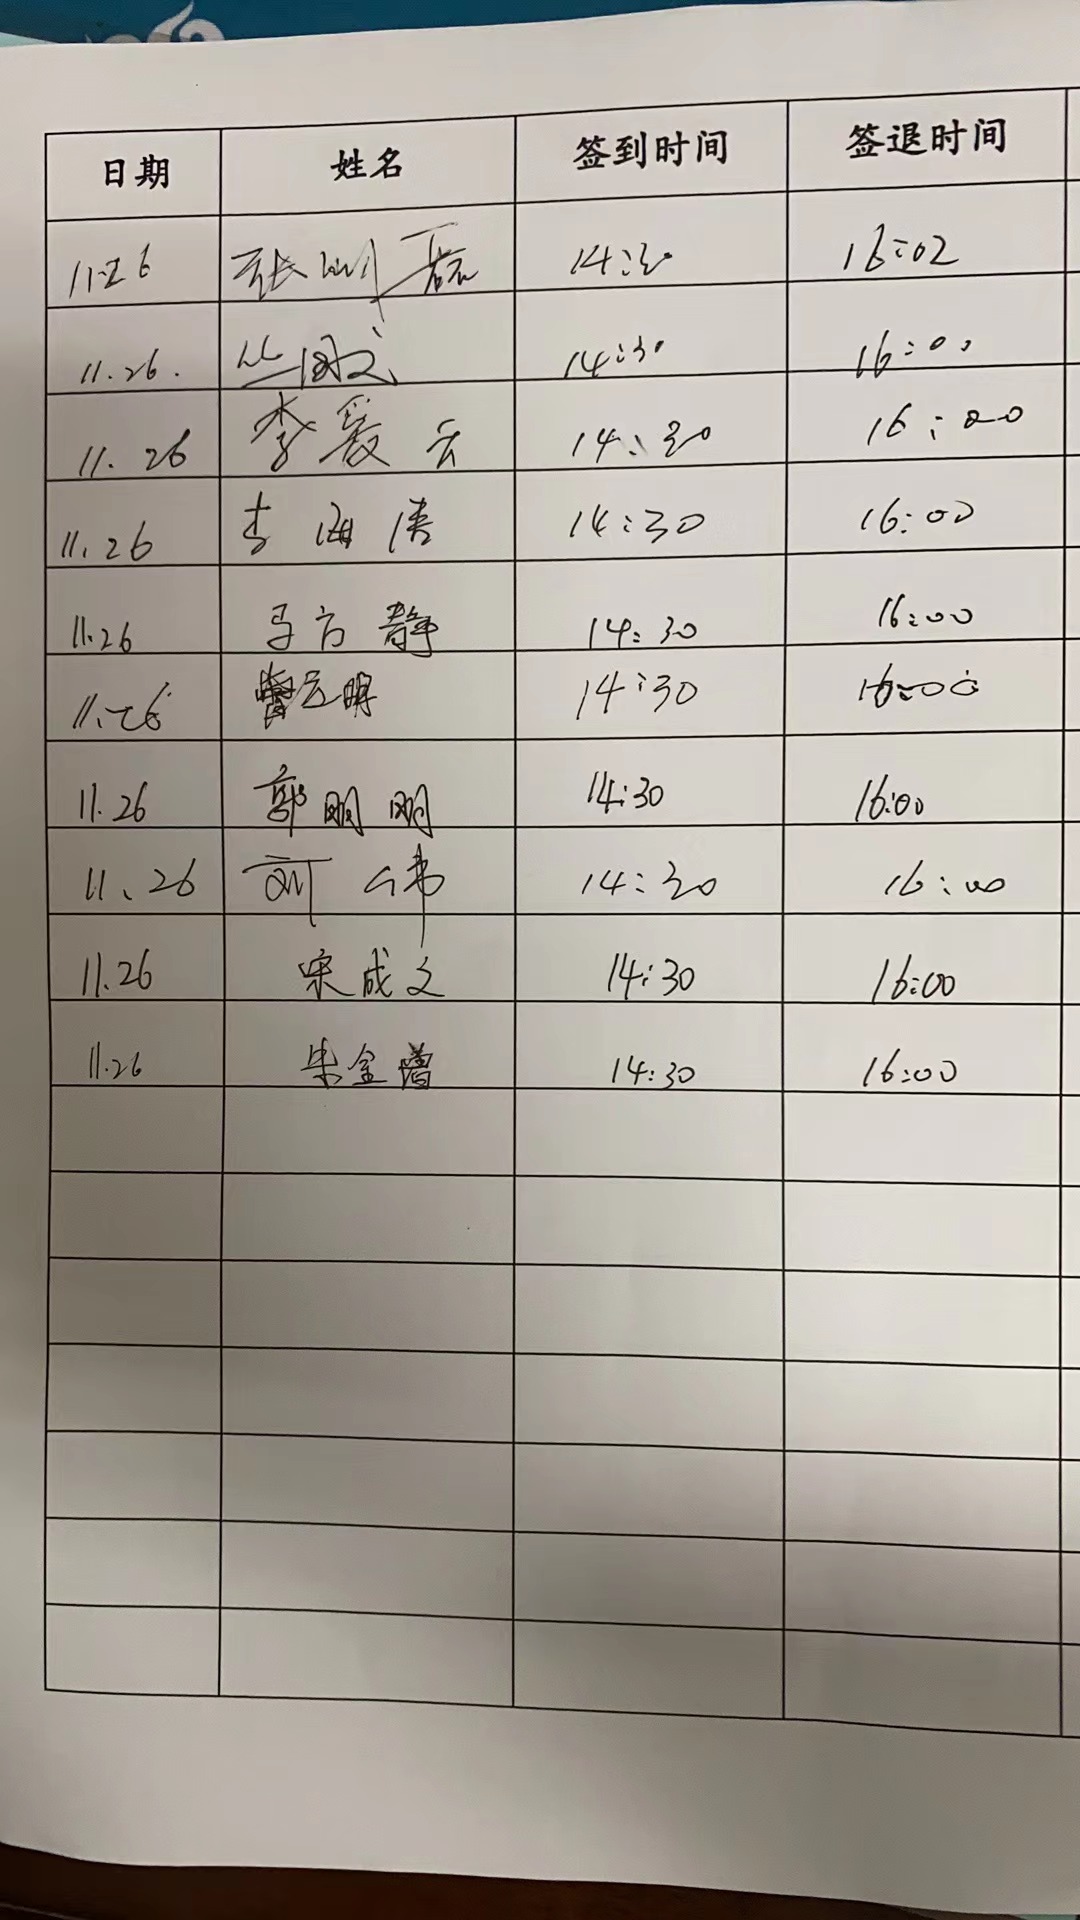 日期 姓名 签到时间 签退时间
11.26 张 14:30 16:02
11.26. 丛 14:30 16:00
11.26 李爱云 14:30 16:00
11.26 李海涛 14:30 16:00
11.26 马方静 14:30 16:00
11.26 雷立明 14:30 16:00
11.26 郭明明 14:30 16:00
11.26 刘伟 14:30 16:00
11.26 宋成文 14:30 16:00
11.26 朱金 14:30 16:00